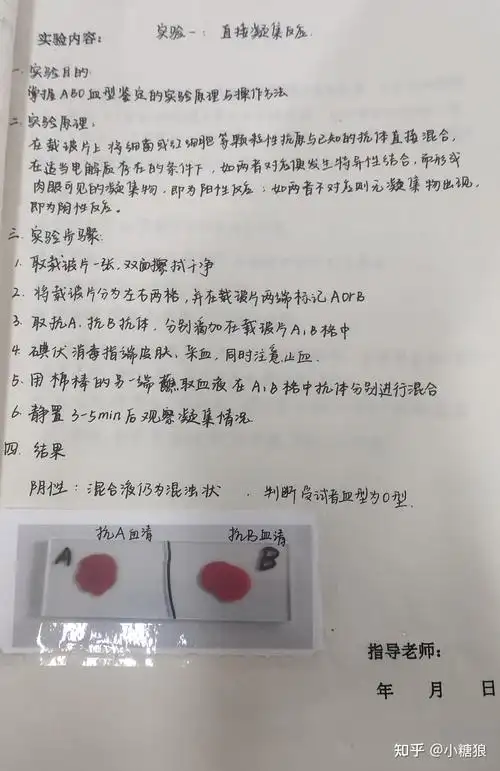 实验内容： 实验一：直接凝集反应.
一. 实验目的.
掌握ABO血型鉴定的实验原理与操作方法
二. 实验原理.
在载玻片上将细菌或红细胞等颗粒性抗原与已知的抗体直接混合,
在适当电解质存在的条件下,如两者对应便发生特异性结合,而形成
肉眼可见的凝集物,即为阳性反应；如两者不对应则无凝集物出现,
即为阴性反应。
三. 实验步骤.
1. 取载玻片一张,双面擦拭干净
2. 将载玻片分为左右两格,并在载玻片两端标记AorB
3. 取抗A、抗B抗体,分别滴加在载玻片A、B格中
4. 碘伏消毒指端皮肤、采血,同时注意止血.
5. 用棉棒的另一端蘸取血液在A、B格中抗体分别进行混合
6. 静置3-5min后观察凝集情况
四. 结果
阴性：混合液仍为混浊状 . 判断受试者血型为O型.
抗A血清 抗B血清
A B
指导老师：
年 月 日
知乎 @小糖狼